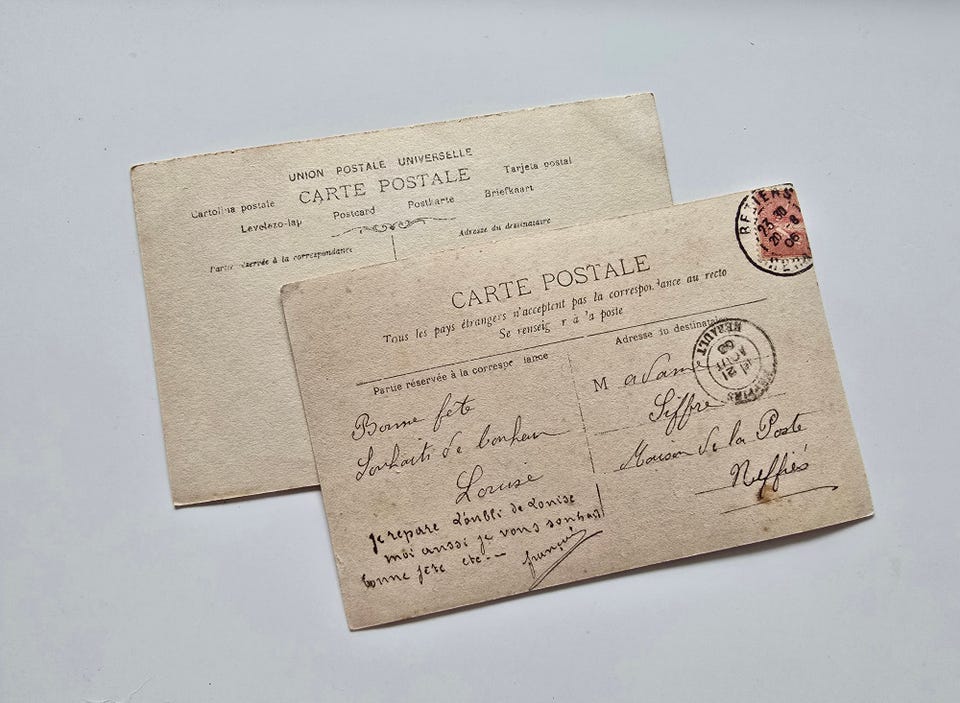 UNION POSTALE UNIVERSELLE
CARTE POSTALE
Cartolina postale
Tarjeta postal
Levelezo-lap
Postcard
Postkarte
Briefkaart
Partie réservée à la correspondance
Adresse du destinataire
CARTE POSTALE
Tous les pays étrangers n'acceptent pas la correspondance au recto
Se renseigner à la poste
Partie réservée à la correspondance
Adresse du destinataire
Bonne fête
Souhaits de bonheur
Louise
je repare l'oubli de Louise
moi aussi je vous souhait
bonne fete etc--
françois
Madame
Siffre
Maison de la Poste
Neffiés
BEZIERS
23 30
20 - 8
06
HERAULT
21
AOUT